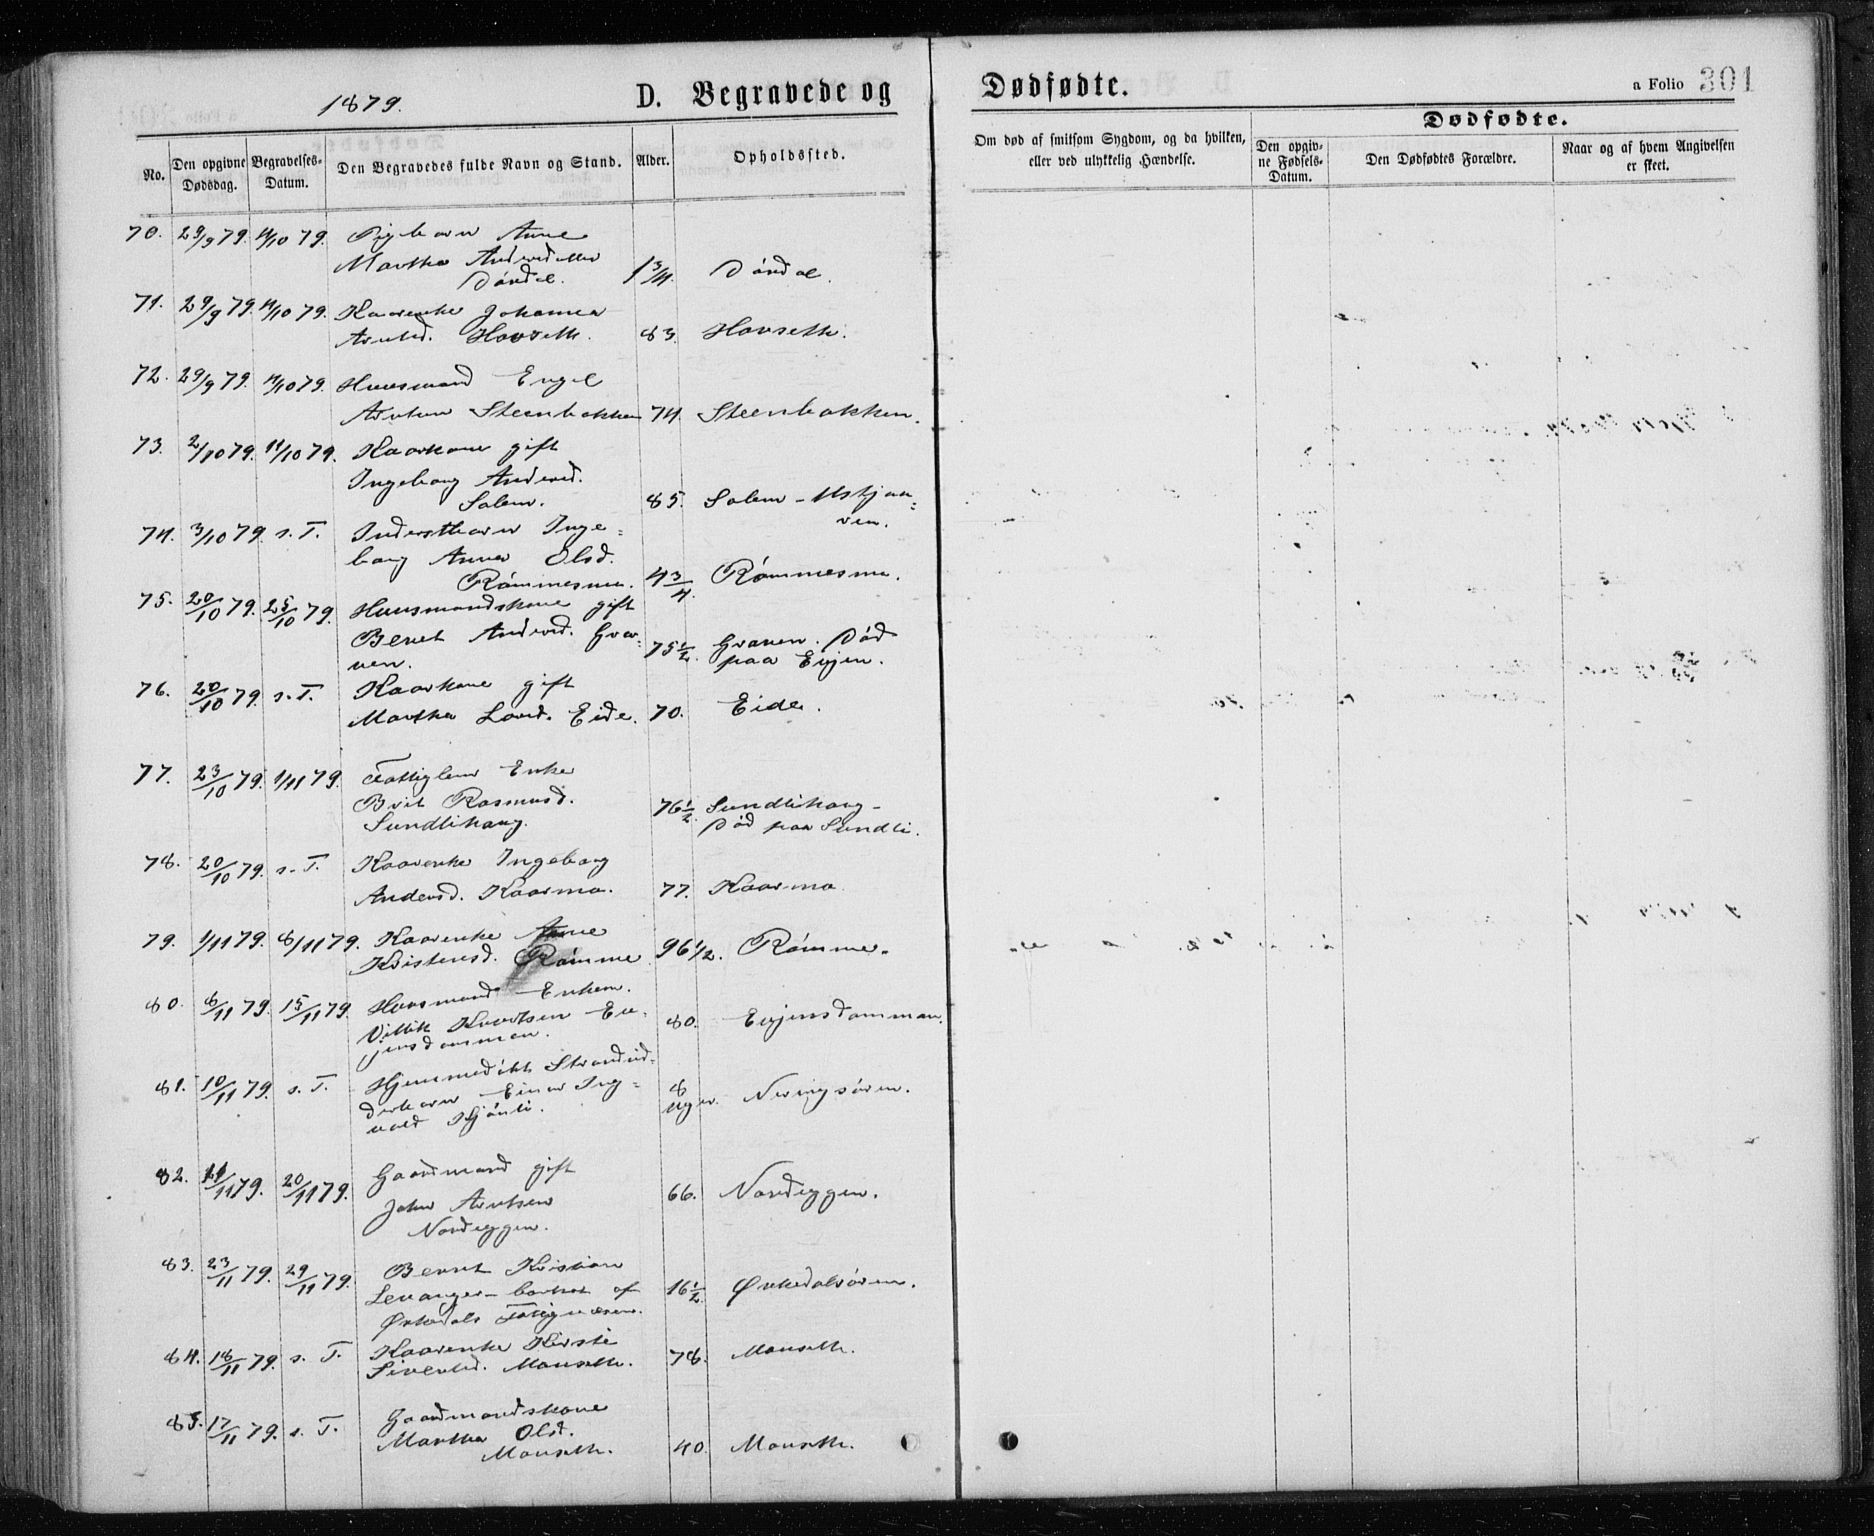 1879.
D. Begravede og Dødfødte.
a Folio 301
No.
Den opgivne Dødsdag.
Begravelses-Datum.
Den Begravedes fulde Navn og Stand.
Alder.
Opholdssted.
Om død af smitsom Sygdom, og da hvilken, eller ved ulykkelig Hændelse.
Dødfødte.
Den opgivne Fødsels-Datum.
Den Dødfødtes Forældre.
Naar og af hvem Angivelsen er skeet.
70. 29/9 79. 4/10 79. Anne
Martha
Dørdal. 1 3/4. Dørdal.
71. 29/9 79. 4/10 79. Kaarenke Johanna
Arntsd. Hovseth. 83. Hovseth.
72. 29/9 79. 4/10 79. Huusmand Engel
Arntsen Steenbakken 74. Steenbakken.
73. 2/10 79. 11/10 79. Kaarkone gift
Ingeborg Andersd.
Solem. 85. Solem -
74. 3/10 79. s. T. Inderstbarn Inge-
borg Anna Olsd.
Rømmesmo. 4 3/4. Rømmesmo.
75. 20/10 79. 25/10 79. Huusmandskone gift
Beret Andersd. Gra-
ven. 75 1/2. Graven. Død
paa Evjen.
76. 20/10 79. s. T. Kaarkone gift
Martha Larsd. Eide. 70. Eide.
77. 23/10 79. 1/11 79. Fattiglem Enke
Brit Rasmusd.
Sundlihaug. 76 1/2. Sundlihaug -
Død paa Sundli.
78. 20/10 79. s. T. Kaarenke Ingeborg
Andersd. Kaarmo. 77. Kaarmo
79. 1/11 79. 8/11 79. Kaarenke Anne
Kristensd. Rømme 96 1/2. Rømme.
80. 8/11 79. 15/11 79. Huusmand Enkem.
Ev-
jensdammen. 80. Evjensdammen.
81. 10/11 79. s. T. Hjemmedøbt Strandsid-
derbarn Einar Ing-
vald 8
Uger. Neringsøren.
82. 11/11 79. 20/11 79. Gaardmand gift
John Arntsen
Nordeggen. 66. Nordeggen.
83. 23/11 79. 29/11 79. Berret Kristian
Levanger - af
Ørkedals Fattigvæsen. 16 1/2. Ørkedalsøren.
84. 18/11 79. s. T. Kaarenke Kirsti
Sivertsd. Monseth. 78. Monseth.
85. 17/11 79. s. T. Gaardmandskone
Martha Olsd.
Monseth. 40. Monseth.